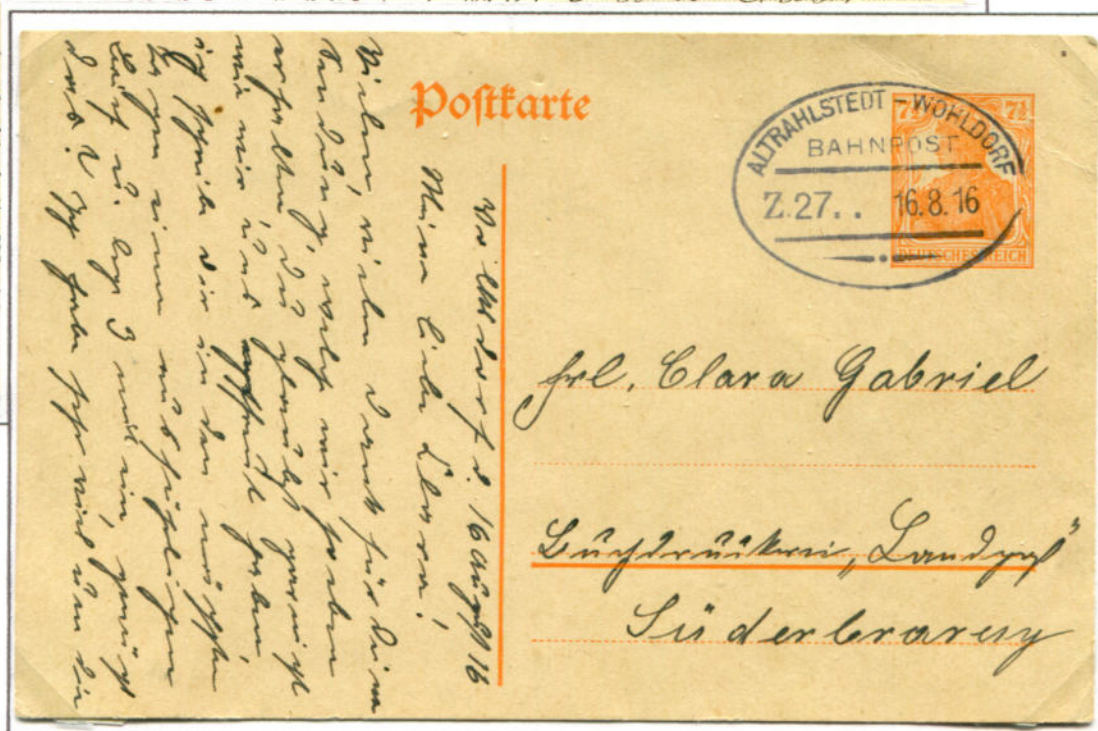 Postkarte
ALTRAHLSTEDT - WOHLDORF
BAHNPOST
Z.27.. 16.8.16
7½ 7½
DEUTSCHES REICH
Frl. Clara Gabriel
Buchdruckerei „Landpost"
Süderbrarup
Wohldorf d. 16 August 16
Meine liebe Clara!
Vielen, vielen Dank für deine
Sendung, welche wir soeben
erhalten, du glaubst garnicht
wie wir uns gefreut haben,
ich schreibe dir in den nächsten
Tagen einen ausführlichen
Brief u. lege 3 mark ein, genügt
das? Ich habe sehr viel um die